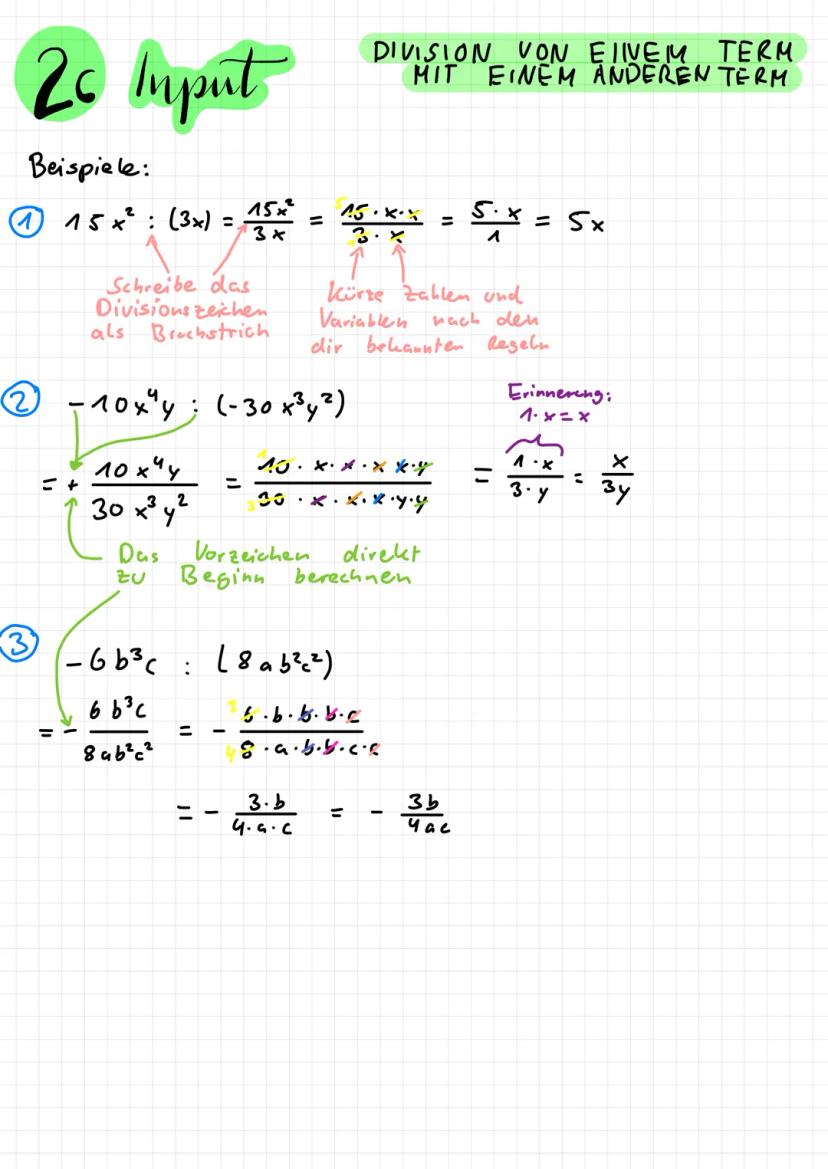 2c Input
DIVISION VON EINEM TERM
MIT EINEM ANDEREN TERM
Beispiele:
① 15x² : (3x) = 15x²/3x = 15·x·x/3·x = 5·x/1 = 5x
5
Schreibe das
Divisionszeichen
als Bruchstrich
Kürze Zahlen und
Variablen nach den
dir bekannten Regeln
② -10x⁴y : (-30x³y²)
Erinnerung:
1·x=x
= + 10x⁴y/30x³y² = 10·x·x·x·x·y/30·x·x·x·y·y = 1·x/3·y = x/3y
1
3
Das Vorzeichen direkt
zu Beginn berechnen
③ -6b³c : (8ab²c²)
= - 6b³c/8ab²c² = - 6·b·b·b·c/8·a·b·b·c·c
3
4
= - 3·b/4·a·c = - 3b/4ac